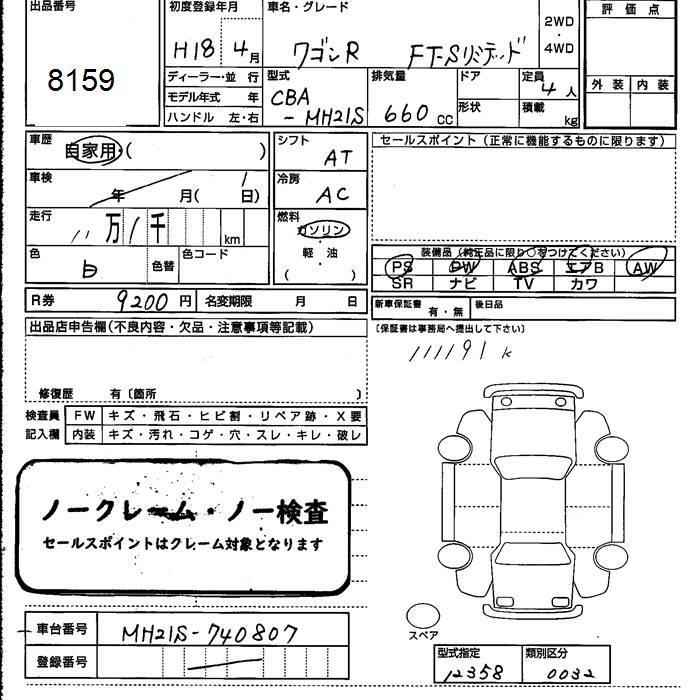 出品番号
8159
初度登録年月
H18 4月
車名・グレード
ワゴンR FT-Sリミテッド
2WD
・
4WD
評価点
外装 内装
ディーラー・並 行
モデル年式 年
ハンドル 左・右
型式
CBA
-MH21S
排気量
660cc
ドア
形状
定員
4人
積載
kg
車歴
自家用・( )
車検
年 月( 日)
走行
11万1千 km
色
白
色替
色コード
シフト
AT
冷房
AC
燃料
ガソリン
軽・油
( )
セールスポイント (正常に機能するものに限ります)
装備品 (純正品に限り○をつけてください)
PS PW ABS エアB AW
SR ナビ TV カワ
R券 9200円 名変期限 月 日
新車保証書
有・無
後日品
(保証書は事務局へ提出して下さい)
111191k
出品店申告欄(不良内容・欠品・注意事項等記載)
修復歴 有〔箇所 〕
検査員 FW キズ・飛石・ヒビ割・リペア跡・X要
記入欄 内装 キズ・汚れ・コゲ・穴・スレ・キレ・破レ
ノークレーム・ノー検査
セールスポイントはクレーム対象となります
車台番号 MH21S-740807
登録番号
スペア
型式指定 類別区分
12358 0032